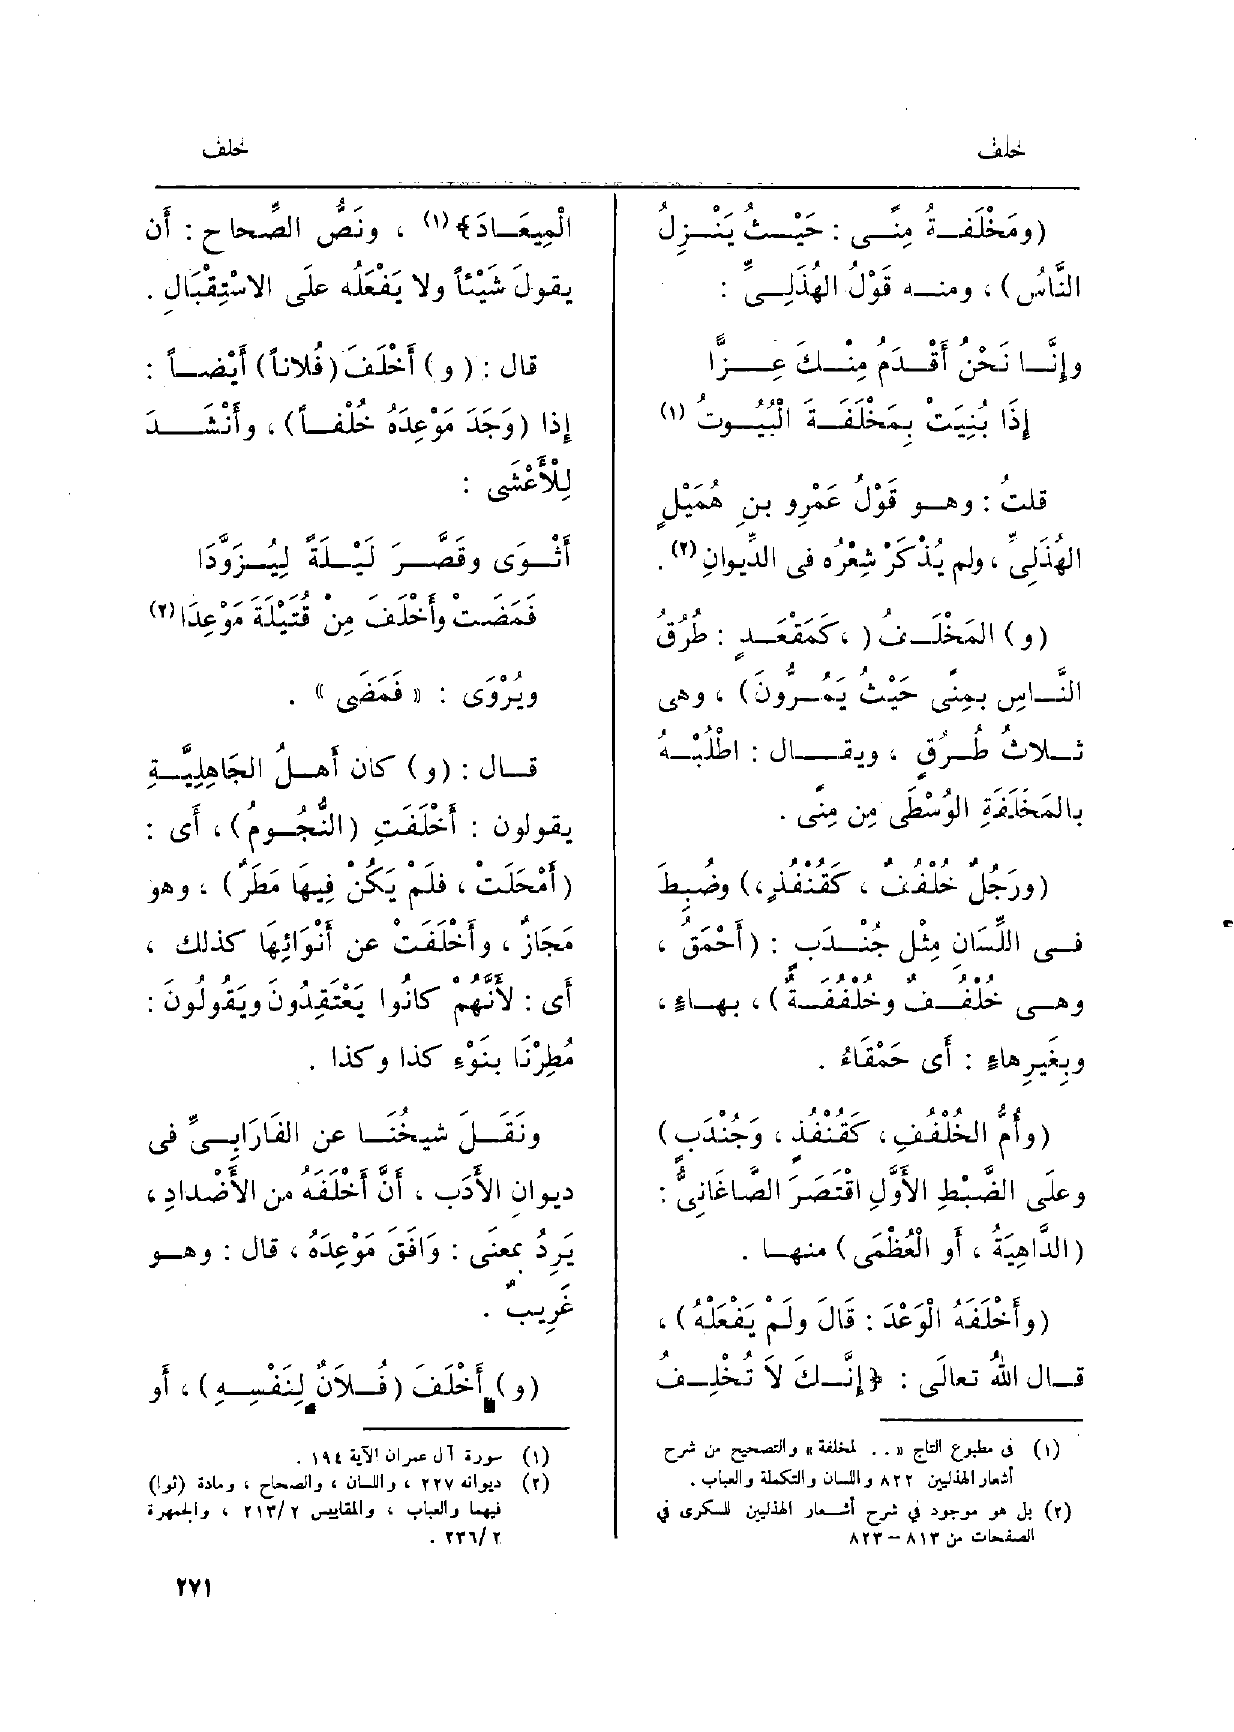 خلف
خلف
(ومَخْلَفَةُ مِنًى : حَيْثُ يَنْزِلُ
النَّاسُ) ، ومنه قَوْلُ الهُذَلِيِّ :
وإِنَّا نَحْنُ أَقْدَمُ مِنْكَ عِزًّا
إِذَا بُنِيَتْ بِمَخْلَفَةَ الْبُيُوتُ (١)
قلتُ : وهو قَوْلُ عَمْرِو بنِ هُمَيْلٍ
الهُذَلِيِّ ، ولم يُذْكَرْ شِعْرُه فى الدِّيوانِ (٢) .
(و) المَخْلَفُ ( ، كمَقْعَدٍ : طُرُقُ
النَّاسِ بمِنًى حَيْثُ يَمُرُّونَ) ، وهى
ثلاثُ طُرُقٍ ، ويقال : اطْلُبْهُ
بالمَخْلَفَةِ الوُسْطَى مِن مِنًى .
(ورَجُلٌ خُلْفُفٌ ، كقُنْفُذٍ ،) وضُبِطَ
فى اللِّسَانِ مِثْل جُنْدَبٍ : (أَحْمَقُ ،
وهى خُلْفُفٌ وخُلْفُفَةٌ) ، بهاءٍ ،
وبِغَيرِ هاءٍ : أَى حَمْقَاءُ .
(وأُمُّ الخُلْفُفِ ، كقُنْفُذٍ ، وَجُنْدَبٍ)
وعلى الضَّبْطِ الأَوَّلِ اقْتَصَرَ الصَّاغَانِىُّ :
(الدَّاهِيَةُ ، أَو الْعُظْمَى) منها .
(وأَخْلَفَهُ الْوَعْدَ : قَالَ ولَمْ يَفْعَلْهُ) ،
قال اللهُ تعالَى : ﴿إِنَّكَ لاَ تُخْلِفُ
(١) فى مطبوع التاج « .. لمخلفة » والتصحيح من شرح
أشعار الهذليين ٨٢٢ واللسان والتكملة والعباب .
(٢) بل هو موجود في شرح أشعار الهذليين للسكرى في
الصفحات من ٨١٣ – ٨٢٣
الْمِيعَادَ﴾ (١) ، ونَصُّ الصِّحاحِ : أَن
يقولَ شَيْئاً ولا يَفْعَلُه على الاسْتِقْبَالِ .
قال : (و) أَخْلَفَ (فُلاناً) أَيْضاً :
إذا (وَجَدَ مَوْعِدَهُ خُلْفاً) ، وأَنْشَد
لِلْأَعْشَى :
أَثْوَى وقَصَّرَ لَيْلَةً لِيُزَوَّدَا
فَمَضَتْ وأَخْلَفَ مِنْ قُتَيْلَةَ مَوْعِدَا (٢)
ويُرْوَى : « فَمَضَى » .
قال : (و) كان أَهلُ الجَاهِلِيَّةِ
يقولون : أَخْلَفَتِ (النُّجُومُ) ، أَى :
(أَمْحَلَتْ ، فلَمْ يَكُنْ فِيهَا مَطَرٌ) ، وهو
مَجَازٌ ، وأَخْلَفَتْ عن أَنْوَائِهَا كذلك ،
أَى : لأَنَّهُم كانُوا يَعْتَقِدُونَ ويَقُولُونَ :
مُطِرْنَا بنَوْءِ كذا وكذا .
ونَقَلَ شيخُنَا عن الفَارَابِيِّ فى
ديوانِ الأَدَبِ ، أَنَّ أَخْلَفَهُ من الأَضْدادِ ،
يَرِدُ بمعنَى : وَافَقَ مَوْعِدَهُ ، قال : وهو
غَرِيبٌ .
(و) أَخْلَفَ (فُلاَنٌ لِنَفْسِهِ) ، أَو
(١) سورة آل عمران الآية ١٩٤ .
(٢) ديوانه ٢٢٧ ، واللسان ، والصحاح ، ومادة (ثوا)
فيهما والعباب ، والمقاييس ٢ /٢١٣ ، والجمهرة
٢ /٢٣٦ .
٢٧١